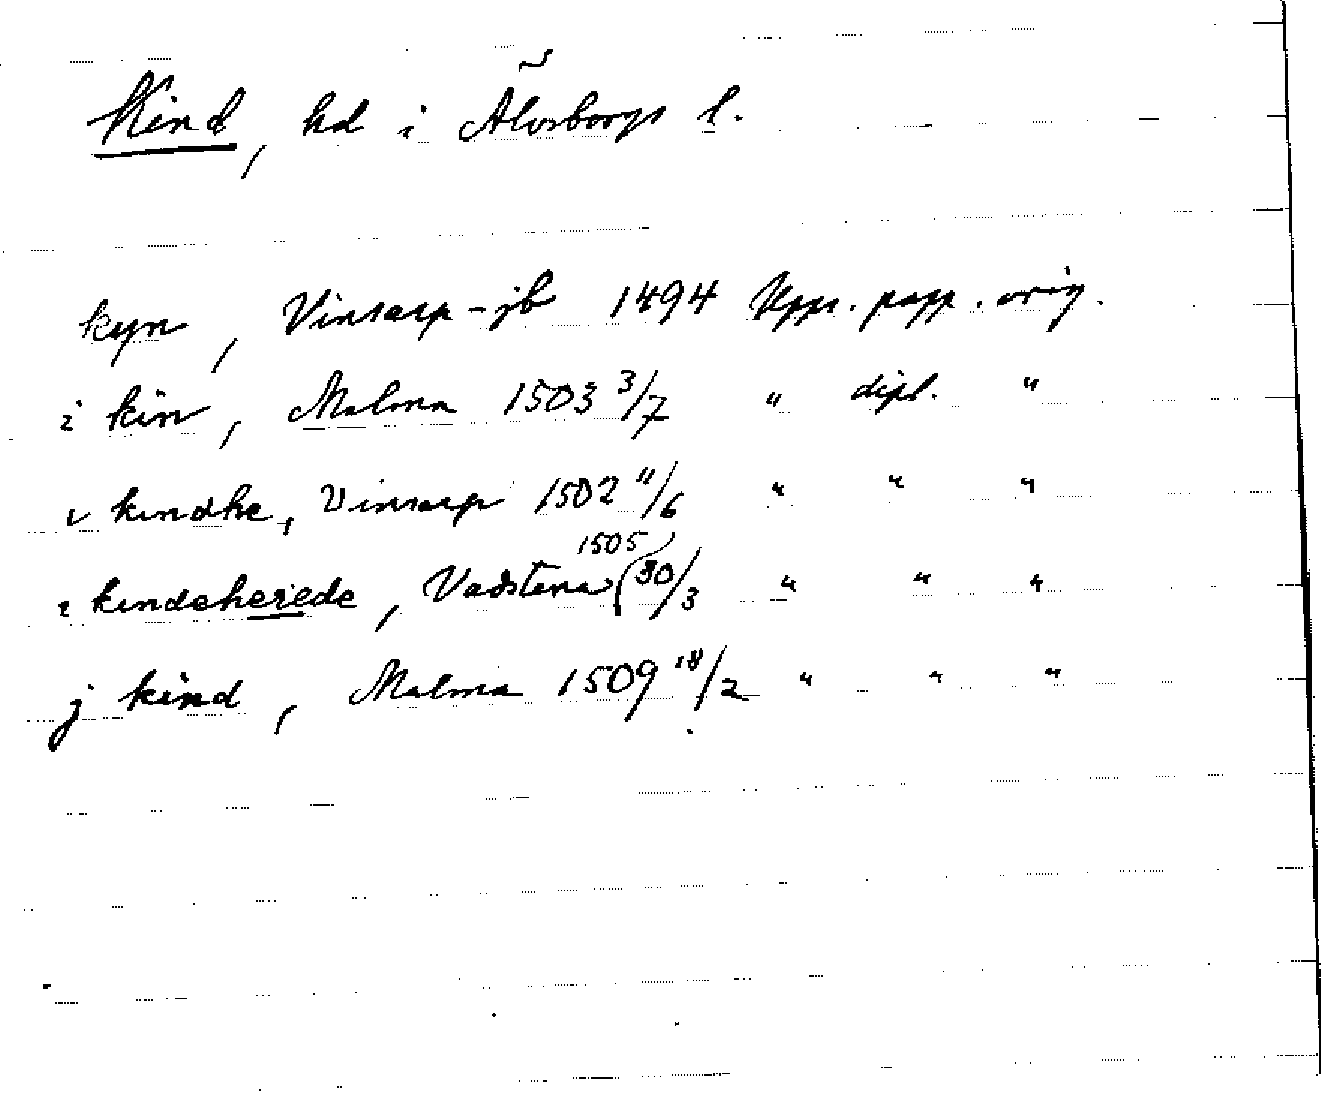 Kind, hd i Älvsborgs l.
kyn, Vinsarp-jb 1494 Upps. papp. orig.
i kin, Malma 1503 3/7 " dipl. "
i kindhe, Vinsarp 1502 11/6 " " "
i kindeherede, Vadstena (1505) 30/3 " " "
j kind, Malma 1509 18/2 " " "